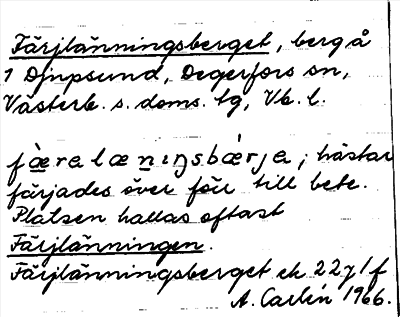 Färjlänningsberget, berg å
1 Djupsund, Degerfors sn,
Västerb. s. doms. tg, Vb. l.
færalænıŋsbærja; hästar
färjades över för till bete.
Platsen kallas oftast
Färjlänningen.
Färjlänningsberget ek. 22 J 1 f
A. Carlén 1966.